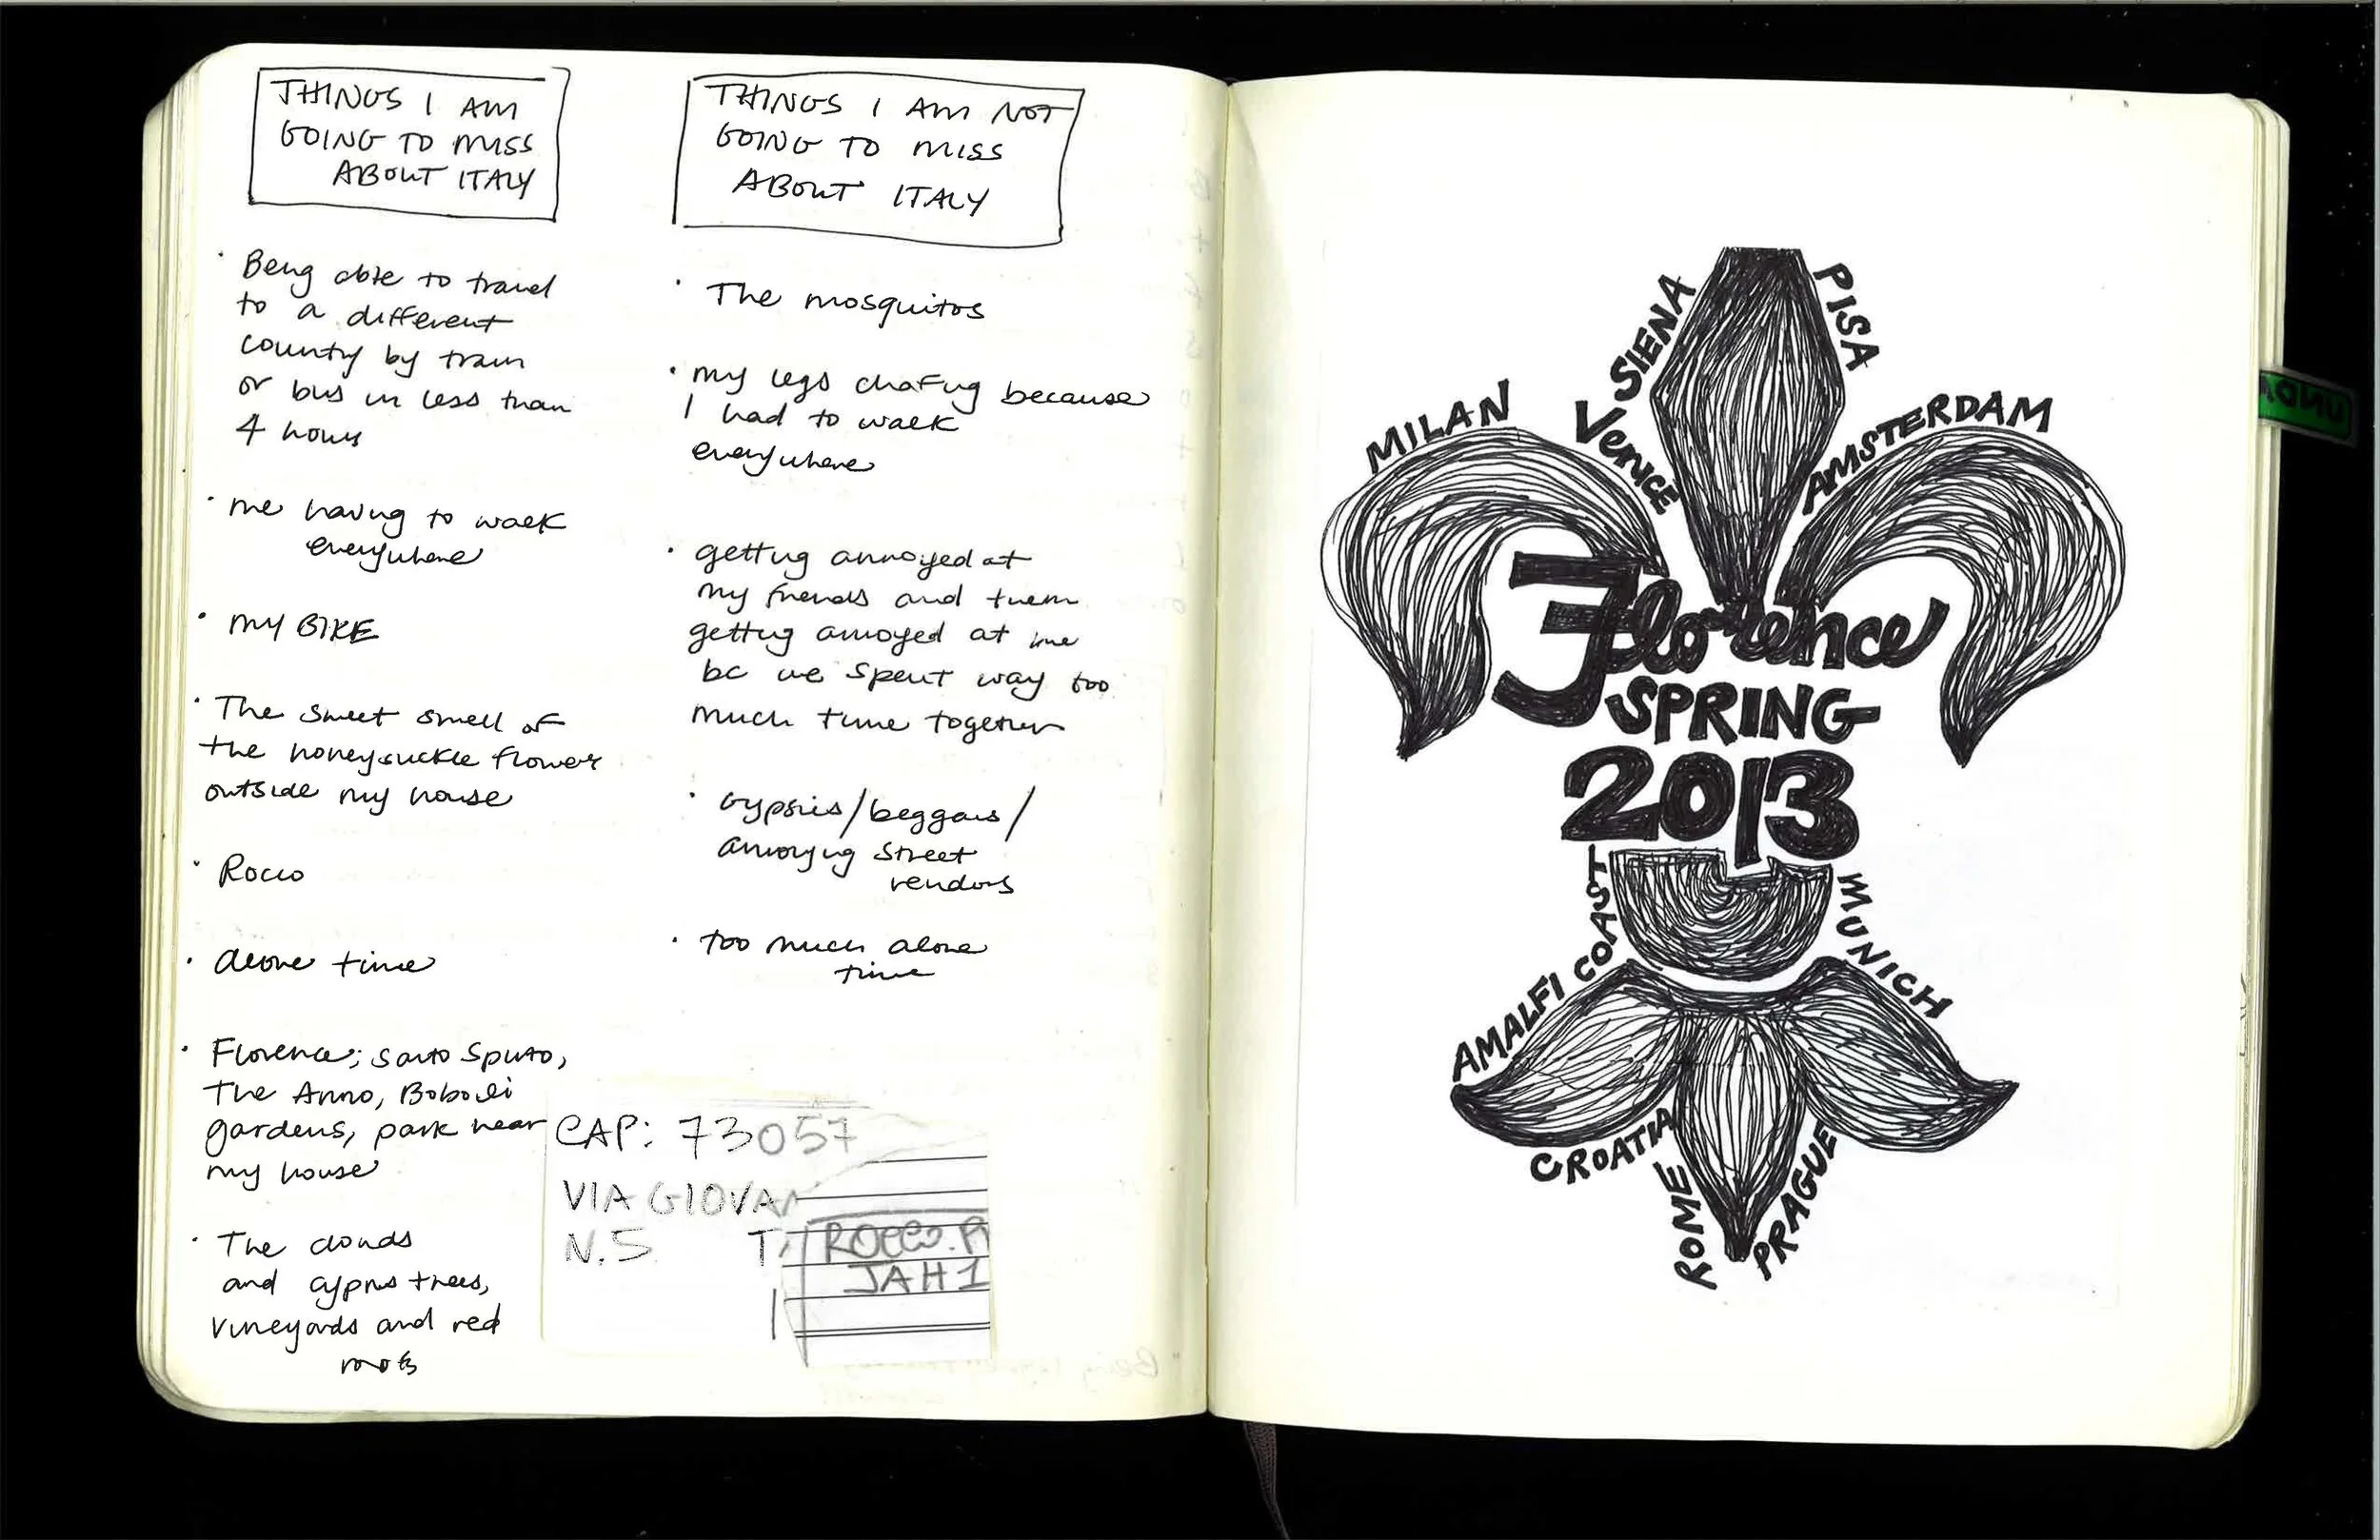 THINGS I AM
GOING TO MISS
ABOUT ITALY
· Beng able to travel
to a different
county by train
or bus in less than
4 hours
· me having to walk
everywhere
· MY BIKE
· The sweet smell of
the honeysuckle flower
outside my house
· Rocco
· alone time
· Florence; Santo Spirito,
The Arno, Boboli
gardens, park near
my house
· The clouds
and cyprus trees,
vineyards and red
roofs
THINGS I AM NOT
GOING TO MISS
ABOUT ITALY
· The mosquitos
· my legs chafing because
I had to walk
everywhere
· getting annoyed at
my friends and them
getting annoyed at me
bc we spent way too
much time together
· Gypsies/beggars/
annoying street
vendors
· too much alone
time
CAP: 73057
VIA GIOVAN
N.5
ROCCO.
JAH1
SIENA
PISA
MILAN
Venice
AMSTERDAM
Florence
SPRING
2013
AMALFI COAST
MUNICH
CROATIA
ROME
PRAGUE